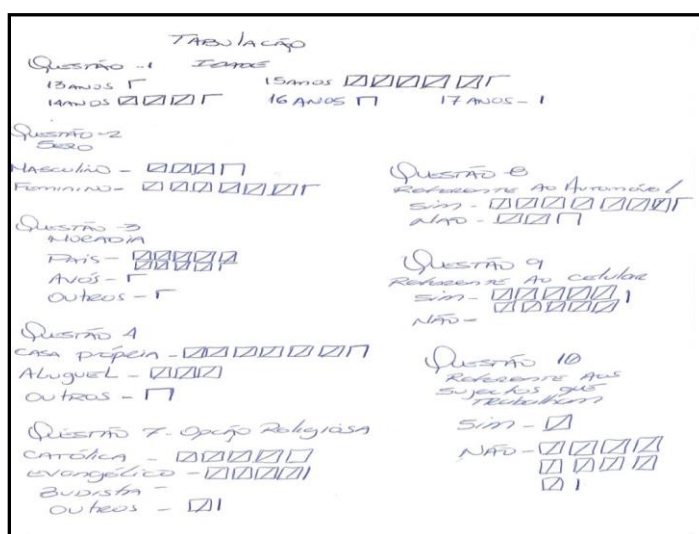 Tabulação
Questão -1 Idade
13 anos
15 anos
14 anos
16 anos
17 anos -
Questão -2
Sexo
Masculino -
Feminino -
Questão -3
Moradia
Pais -
Avós -
Outros -
Questão 4
Casa própria -
Aluguel -
Outros -
Questão 7 - Opção Religiosa
Católica -
Evangélico -
Budista -
Outros -
Questão 8
Referente ao Automóvel
Sim -
Não -
Questão 9
Referente ao celular
Sim -
Não -
Questão 10
Referente aos
sujeitos que
Trabalham
Sim -
Não -